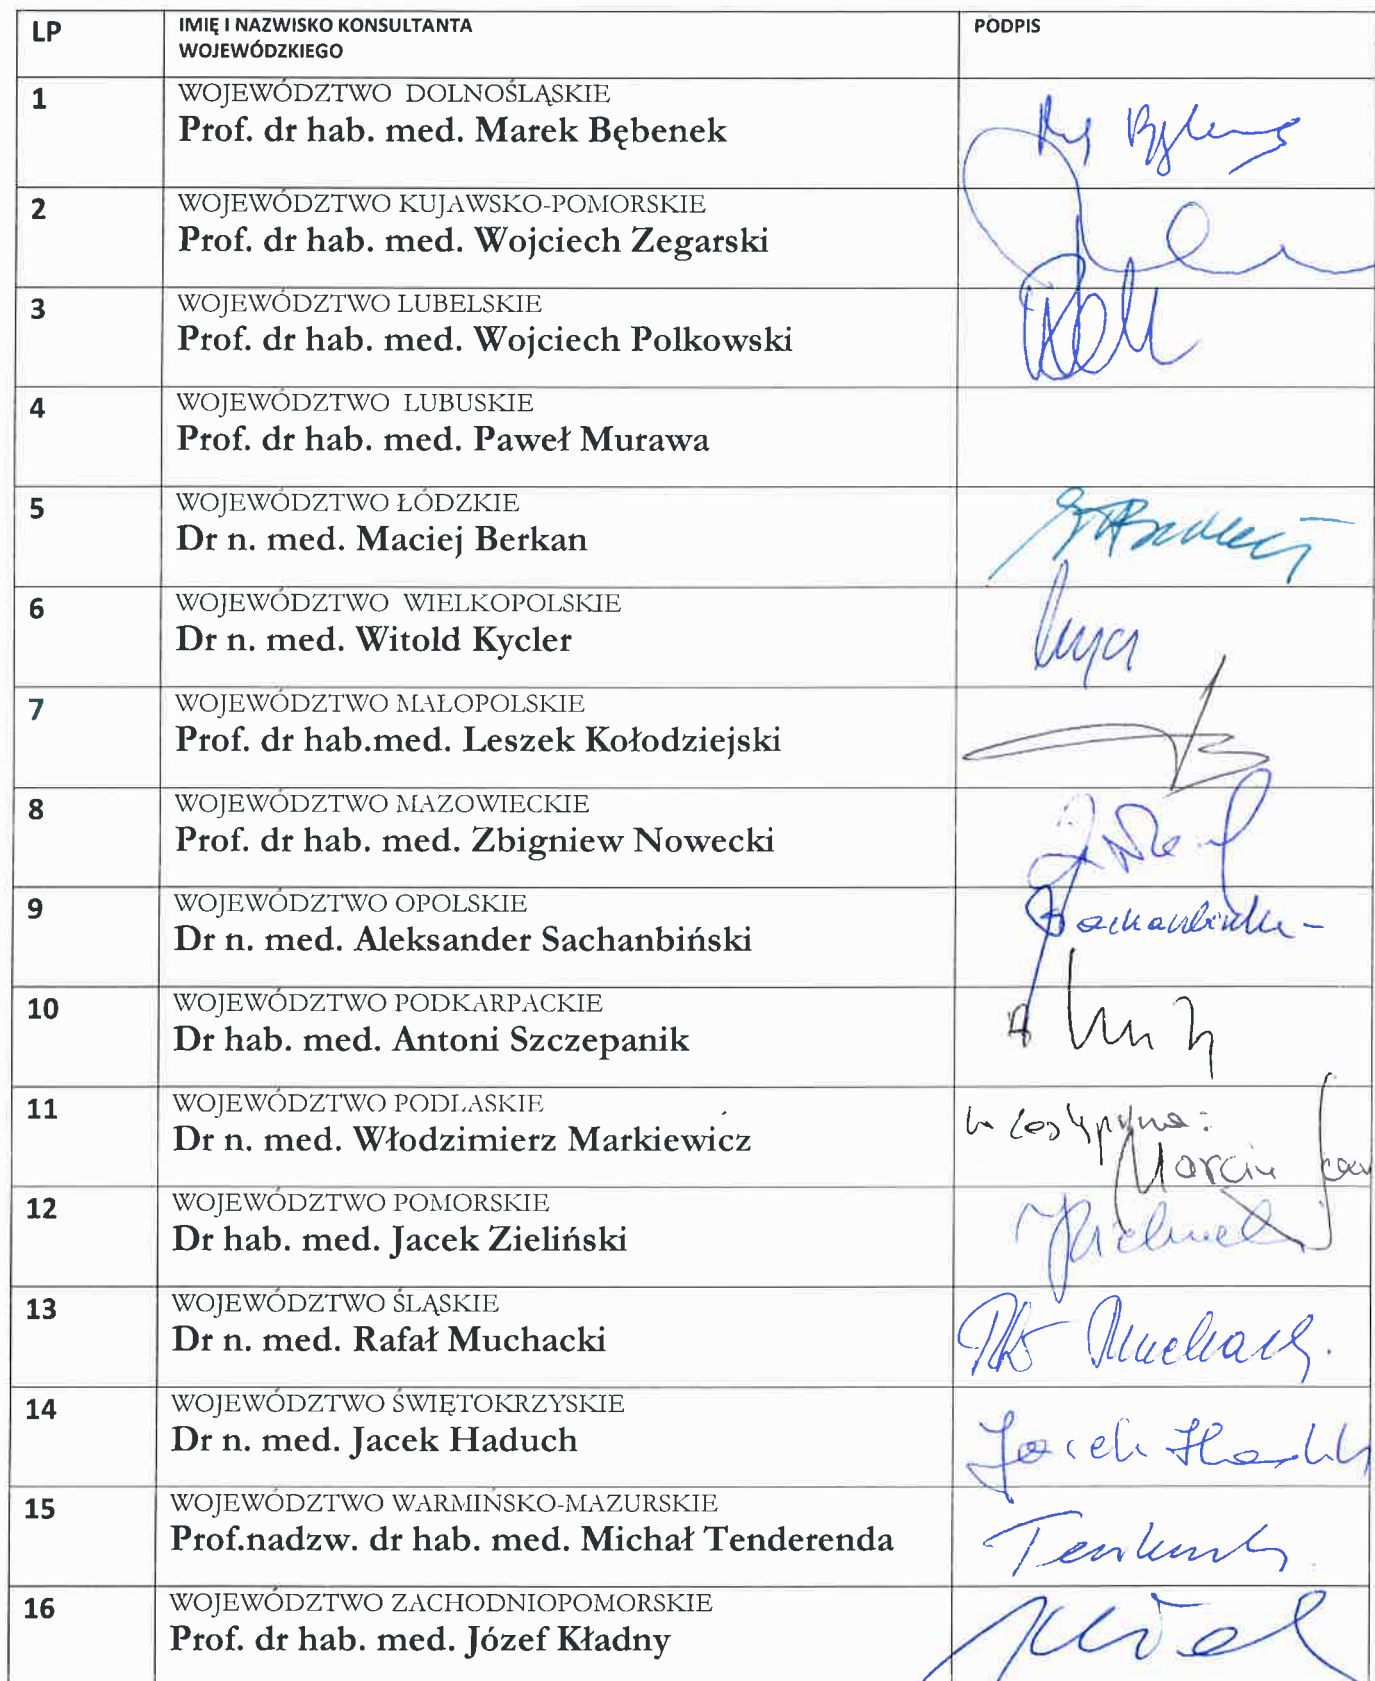 LP
IMIĘ I NAZWISKO KONSULTANTA
WOJEWÓDZKIEGO
PODPIS
1
WOJEWÓDZTWO DOLNOŚLĄSKIE
Prof. dr hab. med. Marek Bębenek
2
WOJEWÓDZTWO KUJAWSKO-POMORSKIE
Prof. dr hab. med. Wojciech Zegarski
3
WOJEWÓDZTWO LUBELSKIE
Prof. dr hab. med. Wojciech Polkowski
4
WOJEWÓDZTWO LUBUSKIE
Prof. dr hab. med. Paweł Murawa
5
WOJEWÓDZTWO ŁÓDZKIE
Dr n. med. Maciej Berkan
6
WOJEWÓDZTWO WIELKOPOLSKIE
Dr n. med. Witold Kycler
7
WOJEWÓDZTWO MAŁOPOLSKIE
Prof. dr hab.med. Leszek Kołodziejski
8
WOJEWÓDZTWO MAZOWIECKIE
Prof. dr hab. med. Zbigniew Nowecki
9
WOJEWÓDZTWO OPOLSKIE
Dr n. med. Aleksander Sachanbiński
10
WOJEWÓDZTWO PODKARPACKIE
Dr hab. med. Antoni Szczepanik
11
WOJEWÓDZTWO PODLASKIE
Dr n. med. Włodzimierz Markiewicz
Marcin
12
WOJEWÓDZTWO POMORSKIE
Dr hab. med. Jacek Zieliński
13
WOJEWÓDZTWO ŚLĄSKIE
Dr n. med. Rafał Muchacki
14
WOJEWÓDZTWO ŚWIĘTOKRZYSKIE
Dr n. med. Jacek Haduch
Jacek
15
WOJEWÓDZTWO WARMIŃSKO-MAZURSKIE
Prof.nadzw. dr hab. med. Michał Tenderenda
16
WOJEWÓDZTWO ZACHODNIOPOMORSKIE
Prof. dr hab. med. Józef Kładny